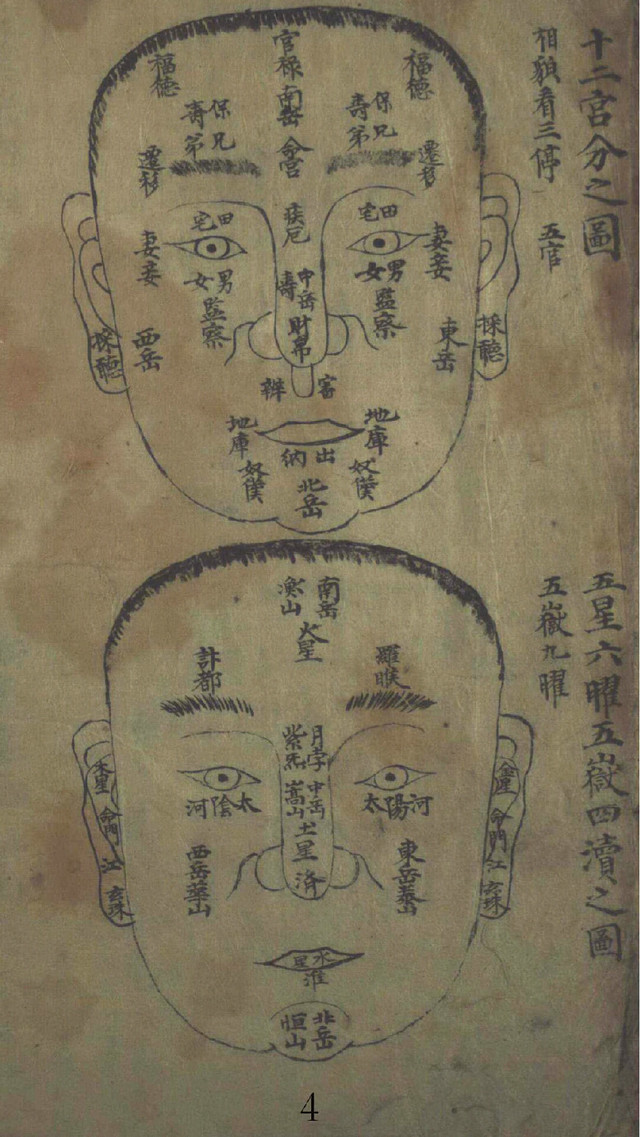 十二宮分之圖
相貌看三停 五官
官祿
南岳
命宮
福德
福德
保壽
兄弟
保壽
兄弟
遷移
遷移
田宅
田宅
疾厄
妻妾
妻妾
男女
男女
中岳
壽
財帛
監察
監察
採聽
採聽
東岳
西岳
審辦
地庫
地庫
出納
奴僕
奴僕
北岳
五星六曜五嶽四瀆之圖
五嶽九曜
南岳
山
火星
羅睺
計都
月孛
紫炁
中岳
嵩山
土星
濟
太陽河
太陰河
金星
命門
江
玄珠
命門
江
玄珠
東岳
山
西岳華山
水星
淮
北岳
恒山
4